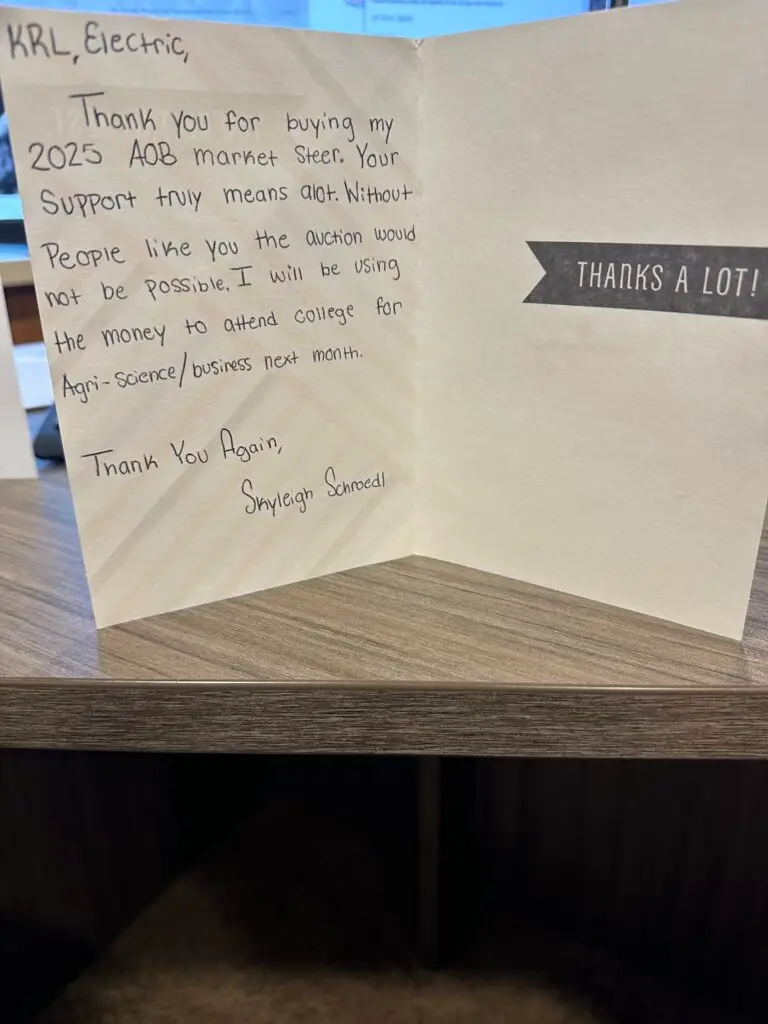 KRL, Electric,
Thank you for buying my
2025 AOB market Steer. Your
Support truly means alot. Without
People like you the auction would
not be possible. I will be using
the money to attend college for
Agri-science/business next month.
Thank You Again,
Skyleigh Schroedl
THANKS A LOT!